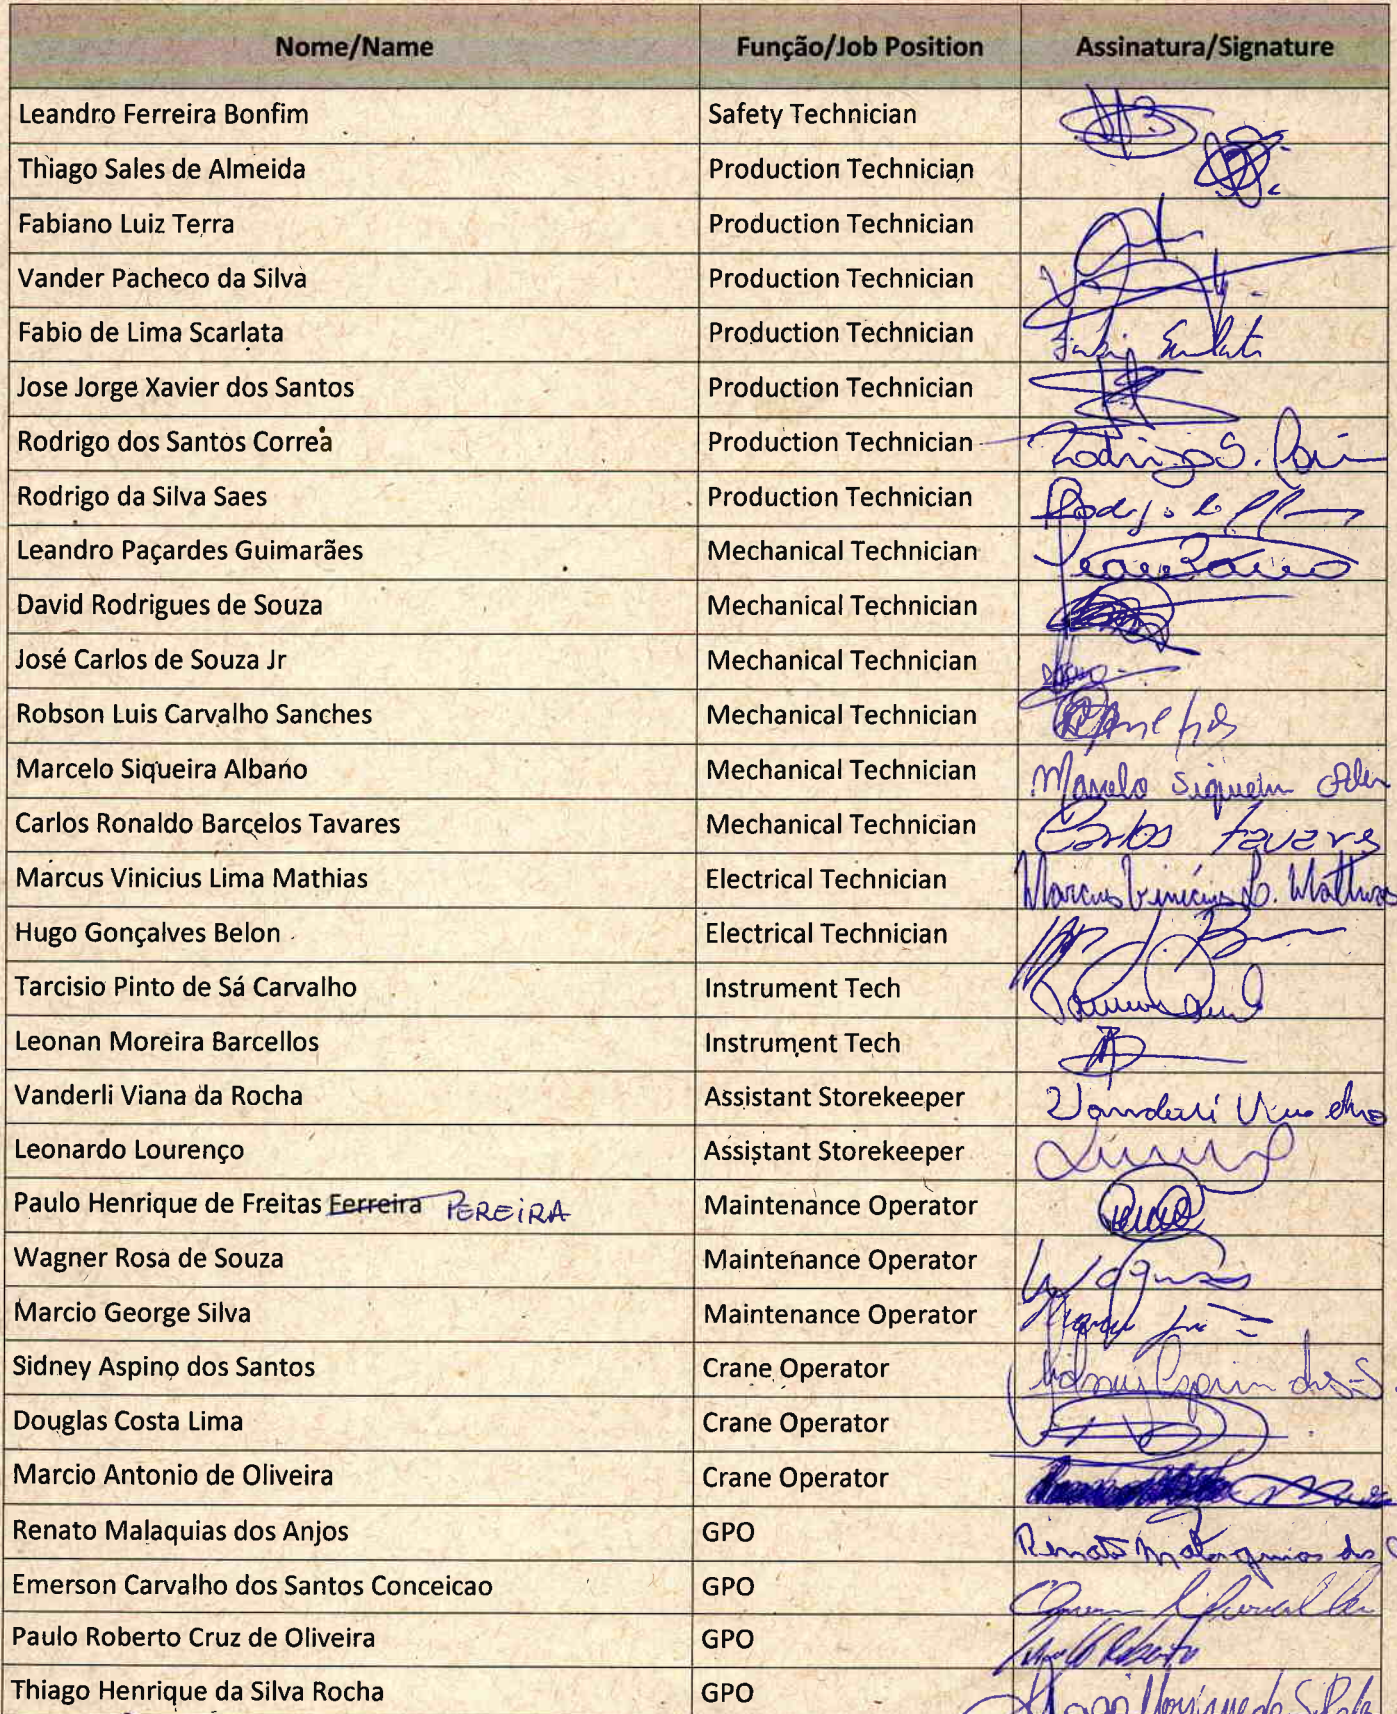 Nome/Name Função/Job Position Assinatura/Signature
Leandro Ferreira Bonfim Safety Technician
Thiago Sales de Almeida Production Technician
Fabiano Luiz Terra Production Technician
Vander Pacheco da Silva Production Technician
Fabio de Lima Scarlata Production Technician
Jose Jorge Xavier dos Santos Production Technician
Rodrigo dos Santos Correa Production Technician Rodrigo S.
Rodrigo da Silva Saes Production Technician
Leandro Paçardes Guimarães Mechanical Technician
David Rodrigues de Souza Mechanical Technician
José Carlos de Souza Jr Mechanical Technician
Robson Luis Carvalho Sanches Mechanical Technician
Marcelo Siqueira Albano Mechanical Technician Marcelo Siqueira
Carlos Ronaldo Barcelos Tavares Mechanical Technician Carlos Tavares
Marcus Vinicius Lima Mathias Electrical Technician Marcus Vinicius L. Mathias
Hugo Gonçalves Belon Electrical Technician
Tarcisio Pinto de Sá Carvalho Instrument Tech
Leonan Moreira Barcellos Instrument Tech
Vanderli Viana da Rocha Assistant Storekeeper Vanderli
Leonardo Lourenço Assistant Storekeeper
Paulo Henrique de Freitas Ferreira PEREIRA Maintenance Operator
Wagner Rosa de Souza Maintenance Operator
Marcio George Silva Maintenance Operator
Sidney Aspino dos Santos Crane Operator
Douglas Costa Lima Crane Operator
Marcio Antonio de Oliveira Crane Operator
Renato Malaquias dos Anjos GPO Renato Malaquias dos
Emerson Carvalho dos Santos Conceicao GPO
Paulo Roberto Cruz de Oliveira GPO
Thiago Henrique da Silva Rocha GPO